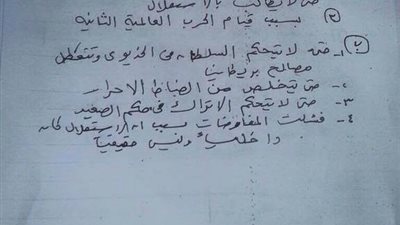 حتى لا يطالب بالاستقلال
٢ بسبب قيام الحرب العالمية الثانية
١- حتى لا تتحكم السلطانه في الخديوى وتتعطل
مصالح بريطانيا
٢- حتى يتخلص من الضباط الاحرار
٣- حتى لا تتحكم الاتراك في حكم الصعيد
٤- فشلت المفاوضات بسبب انه الاستقلال كانه
داخلياً وليس حقيقياً